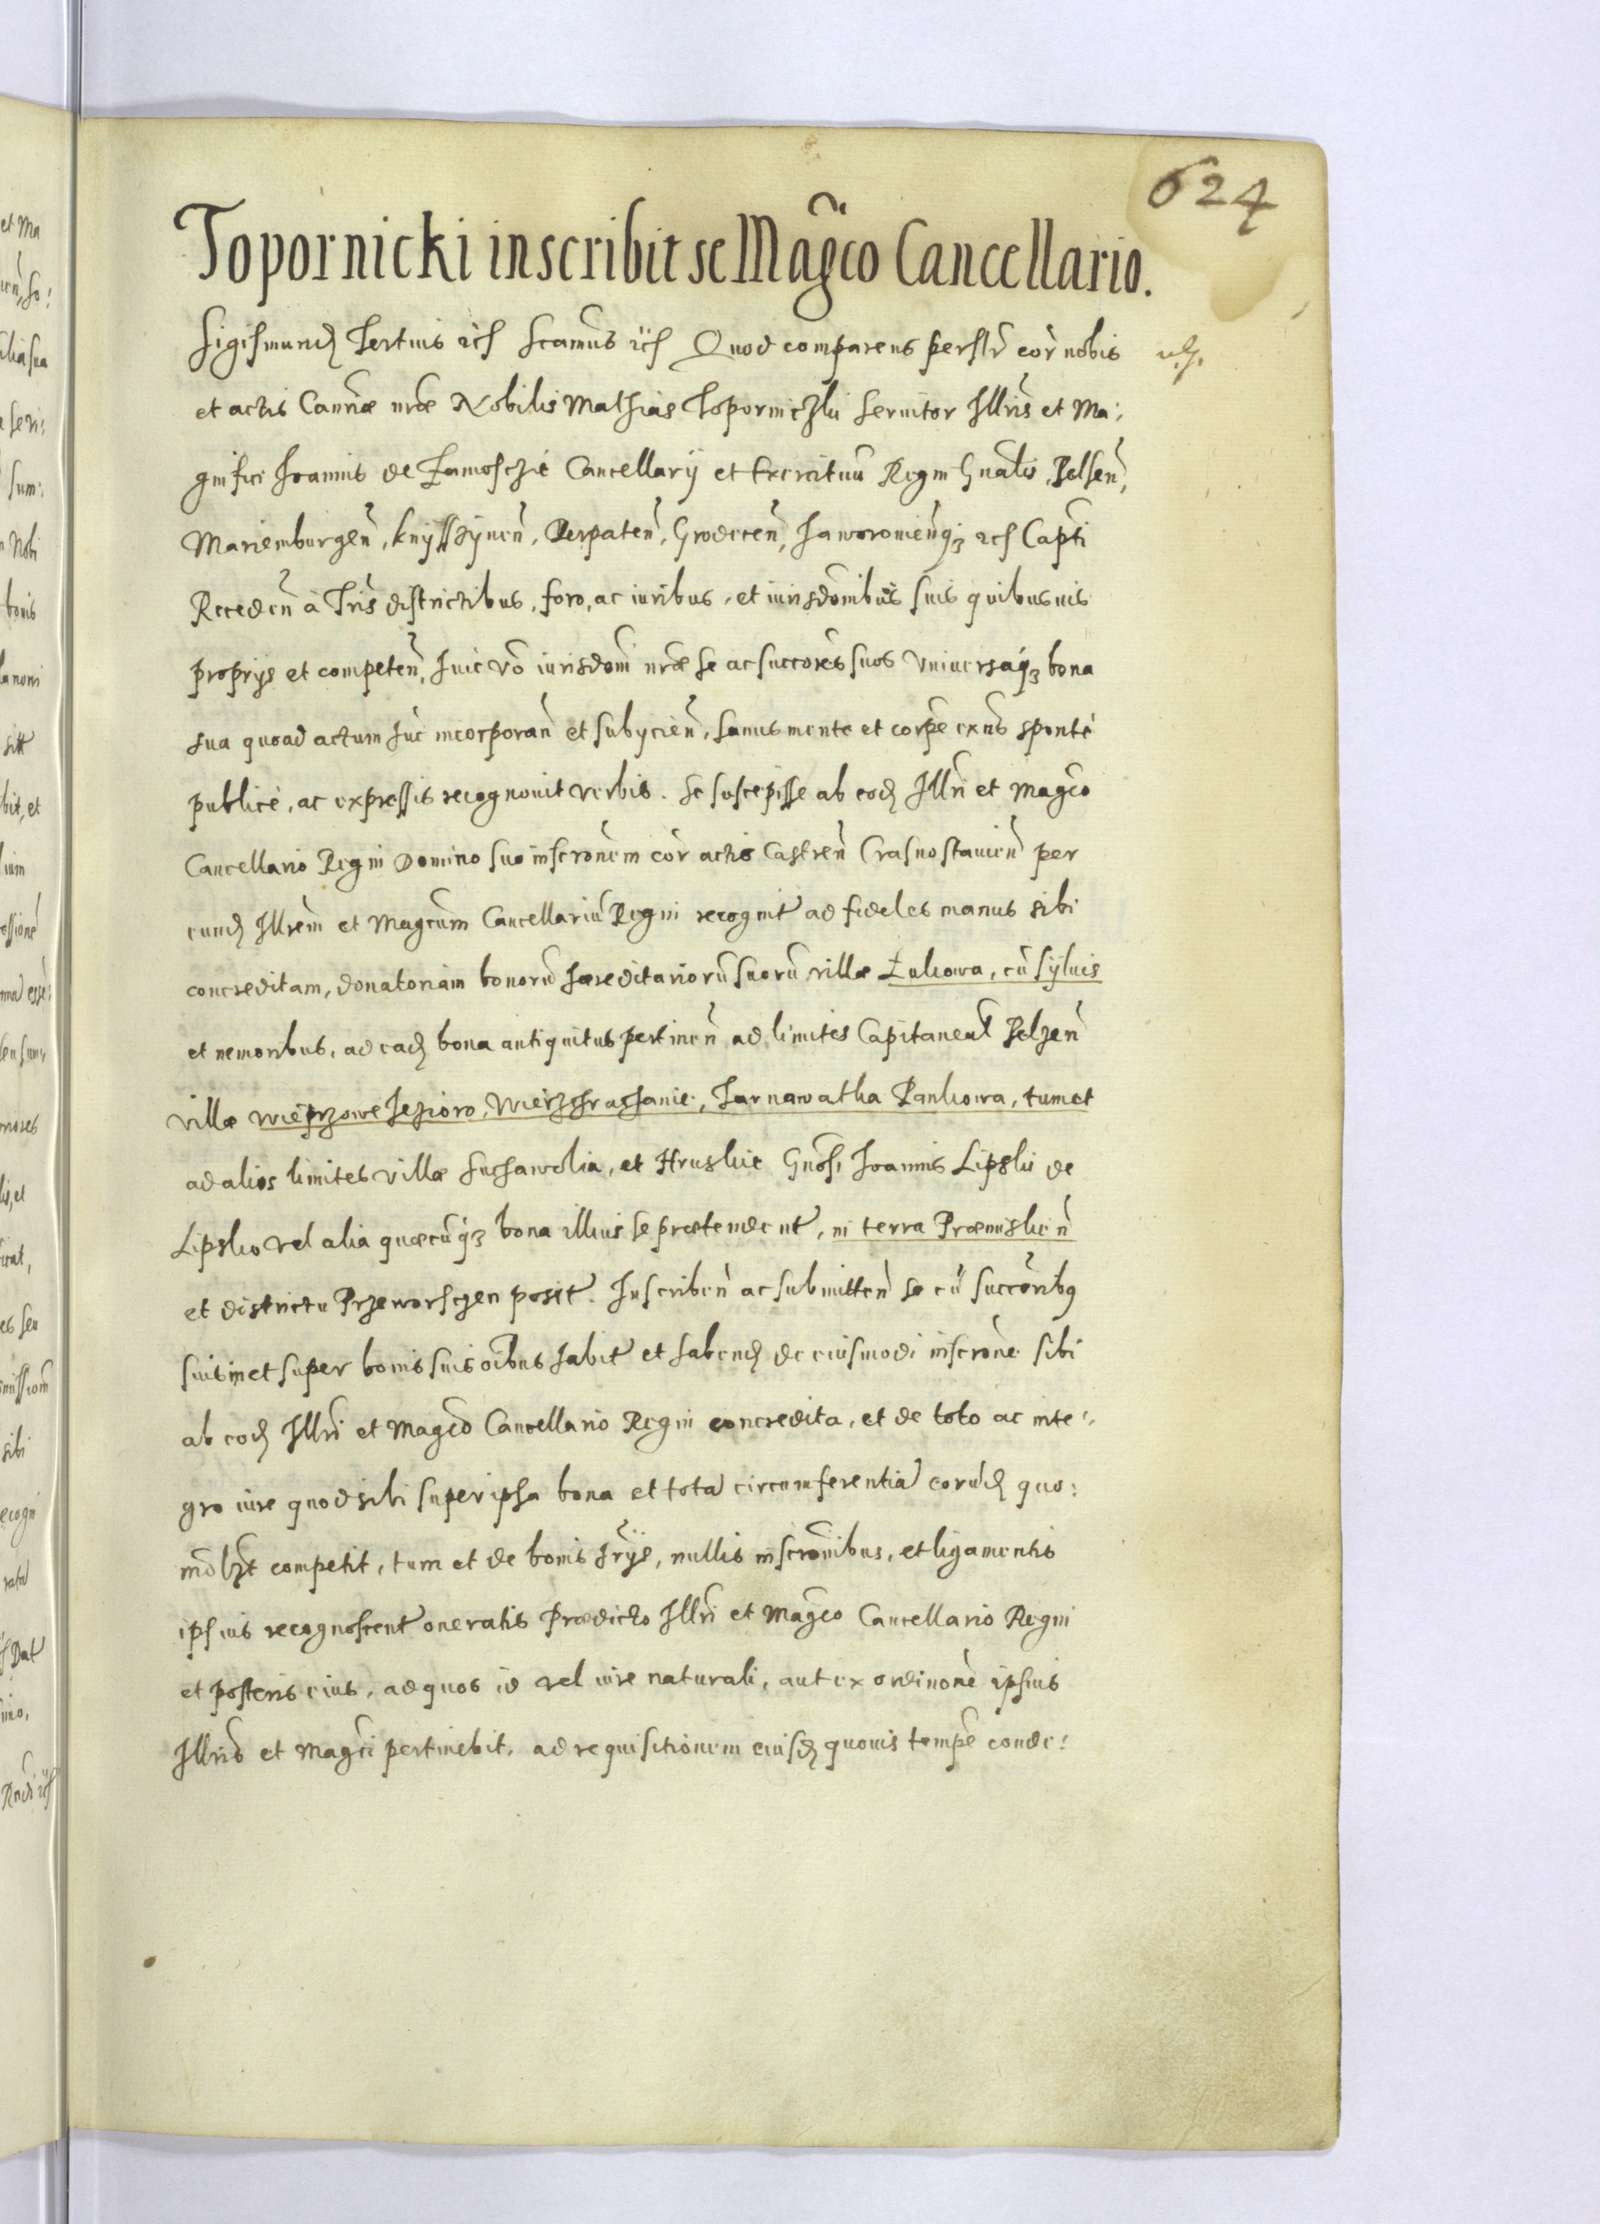 624
Topornicki inscribit se Mag̃co Cancellario.
Sigismund Tertius etc Scãmus etc Quod comparens persłr cor nobis
et actis Canñæ nræ Nobilis Mathias Toporniczki seruitor Illris et Ma:
gnifici Joannis de Zamosczie Cancellarij et Exercituũ Regni Gñalis, Belseñ,
Mariemburgeñ, knysszyneñ, Derpateñ, Grodeceñ, Jaworoviensq3 etc Capti
Recedeñ à Tris districtibus, foro, ac iuribus, et iurisdõnibus suis quibusuis
proprijs et competeñ, huic võ iurisdõni nræ se ac succores suos vniuersaq3 bona
sua quoad actum huc incorporañ et subijcieñ, sanus mente et corpẽ exñs sponte
publice, ac expressis recognouit verbis. Se suscepisse ab eod Illri et Magco
Cancellario Regni Domino suo inscrõnem cor actis Castreñ Crasnostauieñ per
eund Illrem et Magcum Cancellariũ Regni recognit ad fideles manus sibi
concreditam, donatoriam bonorũ hæreditariorũ suorũ villæ Łukowa, cũ syluis
et nemoribus, ad ead bona antiquitus pertineñ ad limites Capitaneat Belzeñ
villæ Wieprzowe Jezioro, Wierzchrachanie, Tarnawatka Pankowa, tum et
ad alios limites villæ Suchawolia, et Hruskie Gñosi Joannis Lipski de
Lipsko vel alia quæcũq3 bona illius se prætendent, in terra Præmislieñ
et districtu Przeworscżen posit. Inscribeñ ac submitteñ se cũ succõribq
suis in et super bonis suis oĩbus habit et habend de eiusmodi inscrõne sibi
ab eod Illri et Magco Cancellario Regni concredita, et de toto ac inte:
gro iure quod sibi super ipsa bona et tota circumferentia eorũd quo:
mõlzt competit, tum et de bonis hrijs, nullis inscrõnibus, et ligamentis
ipsius recognoscent oneratis Prædicto Illri et Magco Cancellario Regni
et posteris eius, ad quos id vel iure naturali, aut ex ordinõne ipsius
Illris et Magci pertinebit, ad requisitionem eiusd quouis tempẽ conde: